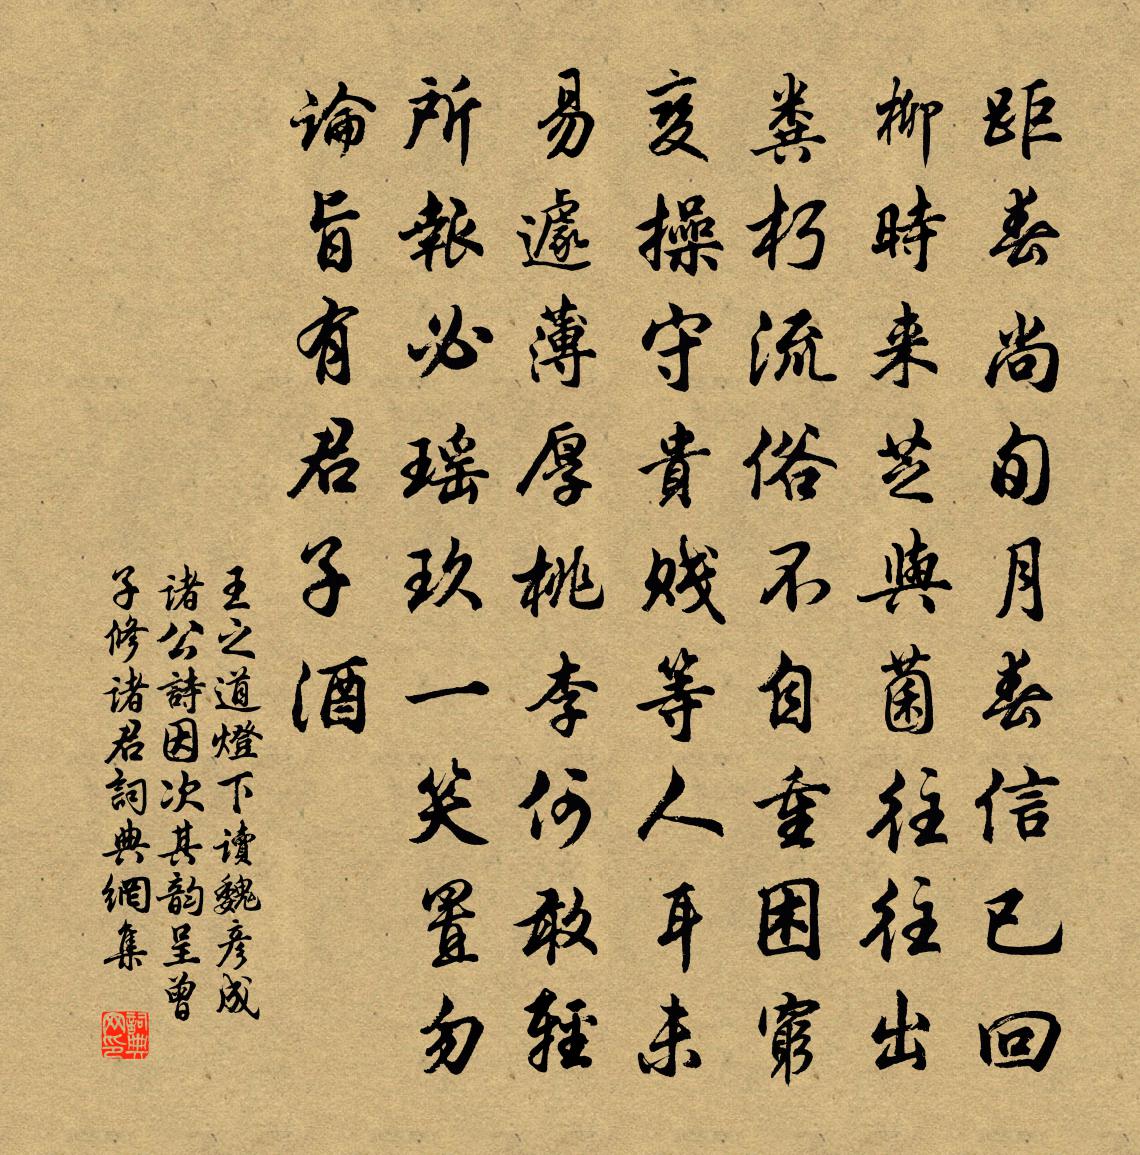 距春尚旬月春信已回
柳時来芝與菌往往出
糞朽流俗不自重困窮
变操守貴賎等人耳未
易遽薄厚桃李何敢輕
所報必瑶玖一笑置勿
論旨有君子酒
王之道燈下讀魏彦成
诸公詩因次其韵呈曾
子修诸君詞典網集
詞典网印